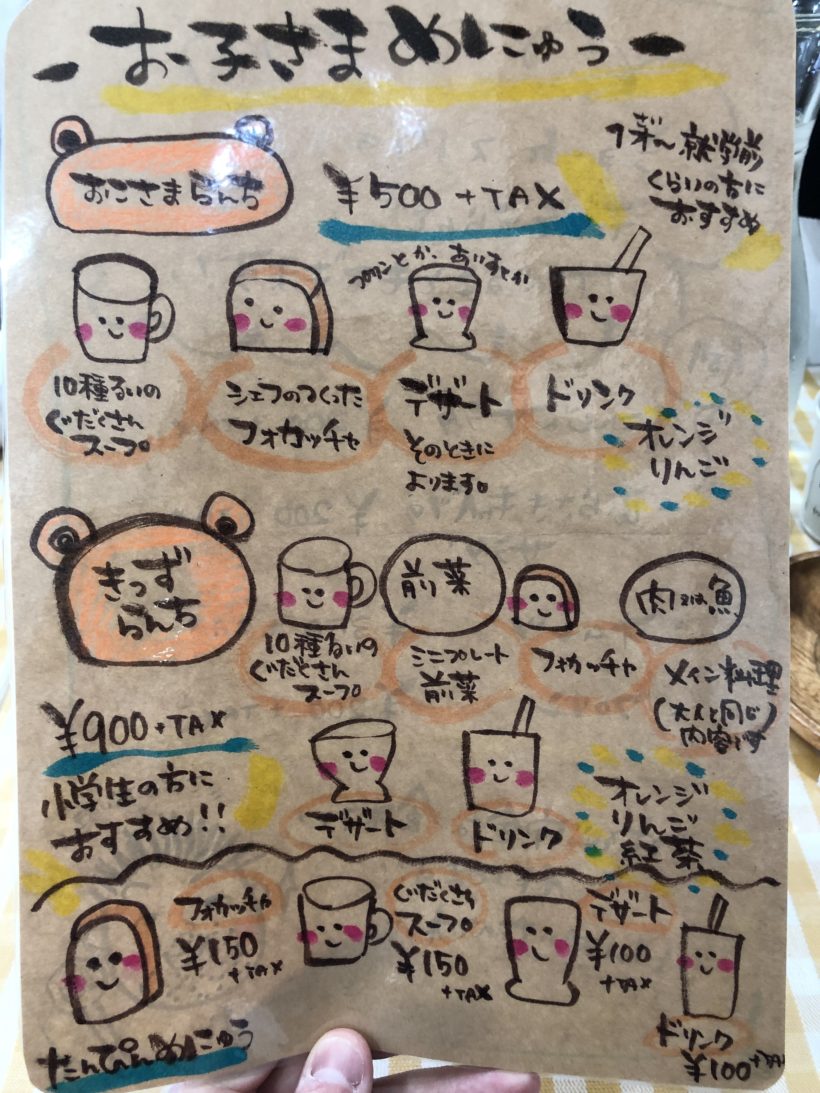 - お子さまめにゅう -
おこさまらんち
¥500 +TAX
就学前
くらいの方に
おすすめ
プリンとか、あいすとか
10種るいの
ぐだくさん
スープ
シェフのつくった
フォカッチャ
デザート
そのときに
よります。
ドリンク
オレンジ
りんご
きっず
らんち
¥900 +TAX
小学生の方に
おすすめ!!
10種るいの
ぐだくさん
スープ
前菜
ミニプレート
前菜
フォカッチャ
肉又は魚
メイン料理
(大人と同じ
内容です)
デザート
ドリンク
オレンジ
りんご
紅茶
フォカッチャ
¥150
+TAX
ぐだくさん
スープ
¥150
+TAX
デザート
¥100
+TAX
ドリンク
¥100 +TAX
たんぴんめにゅう